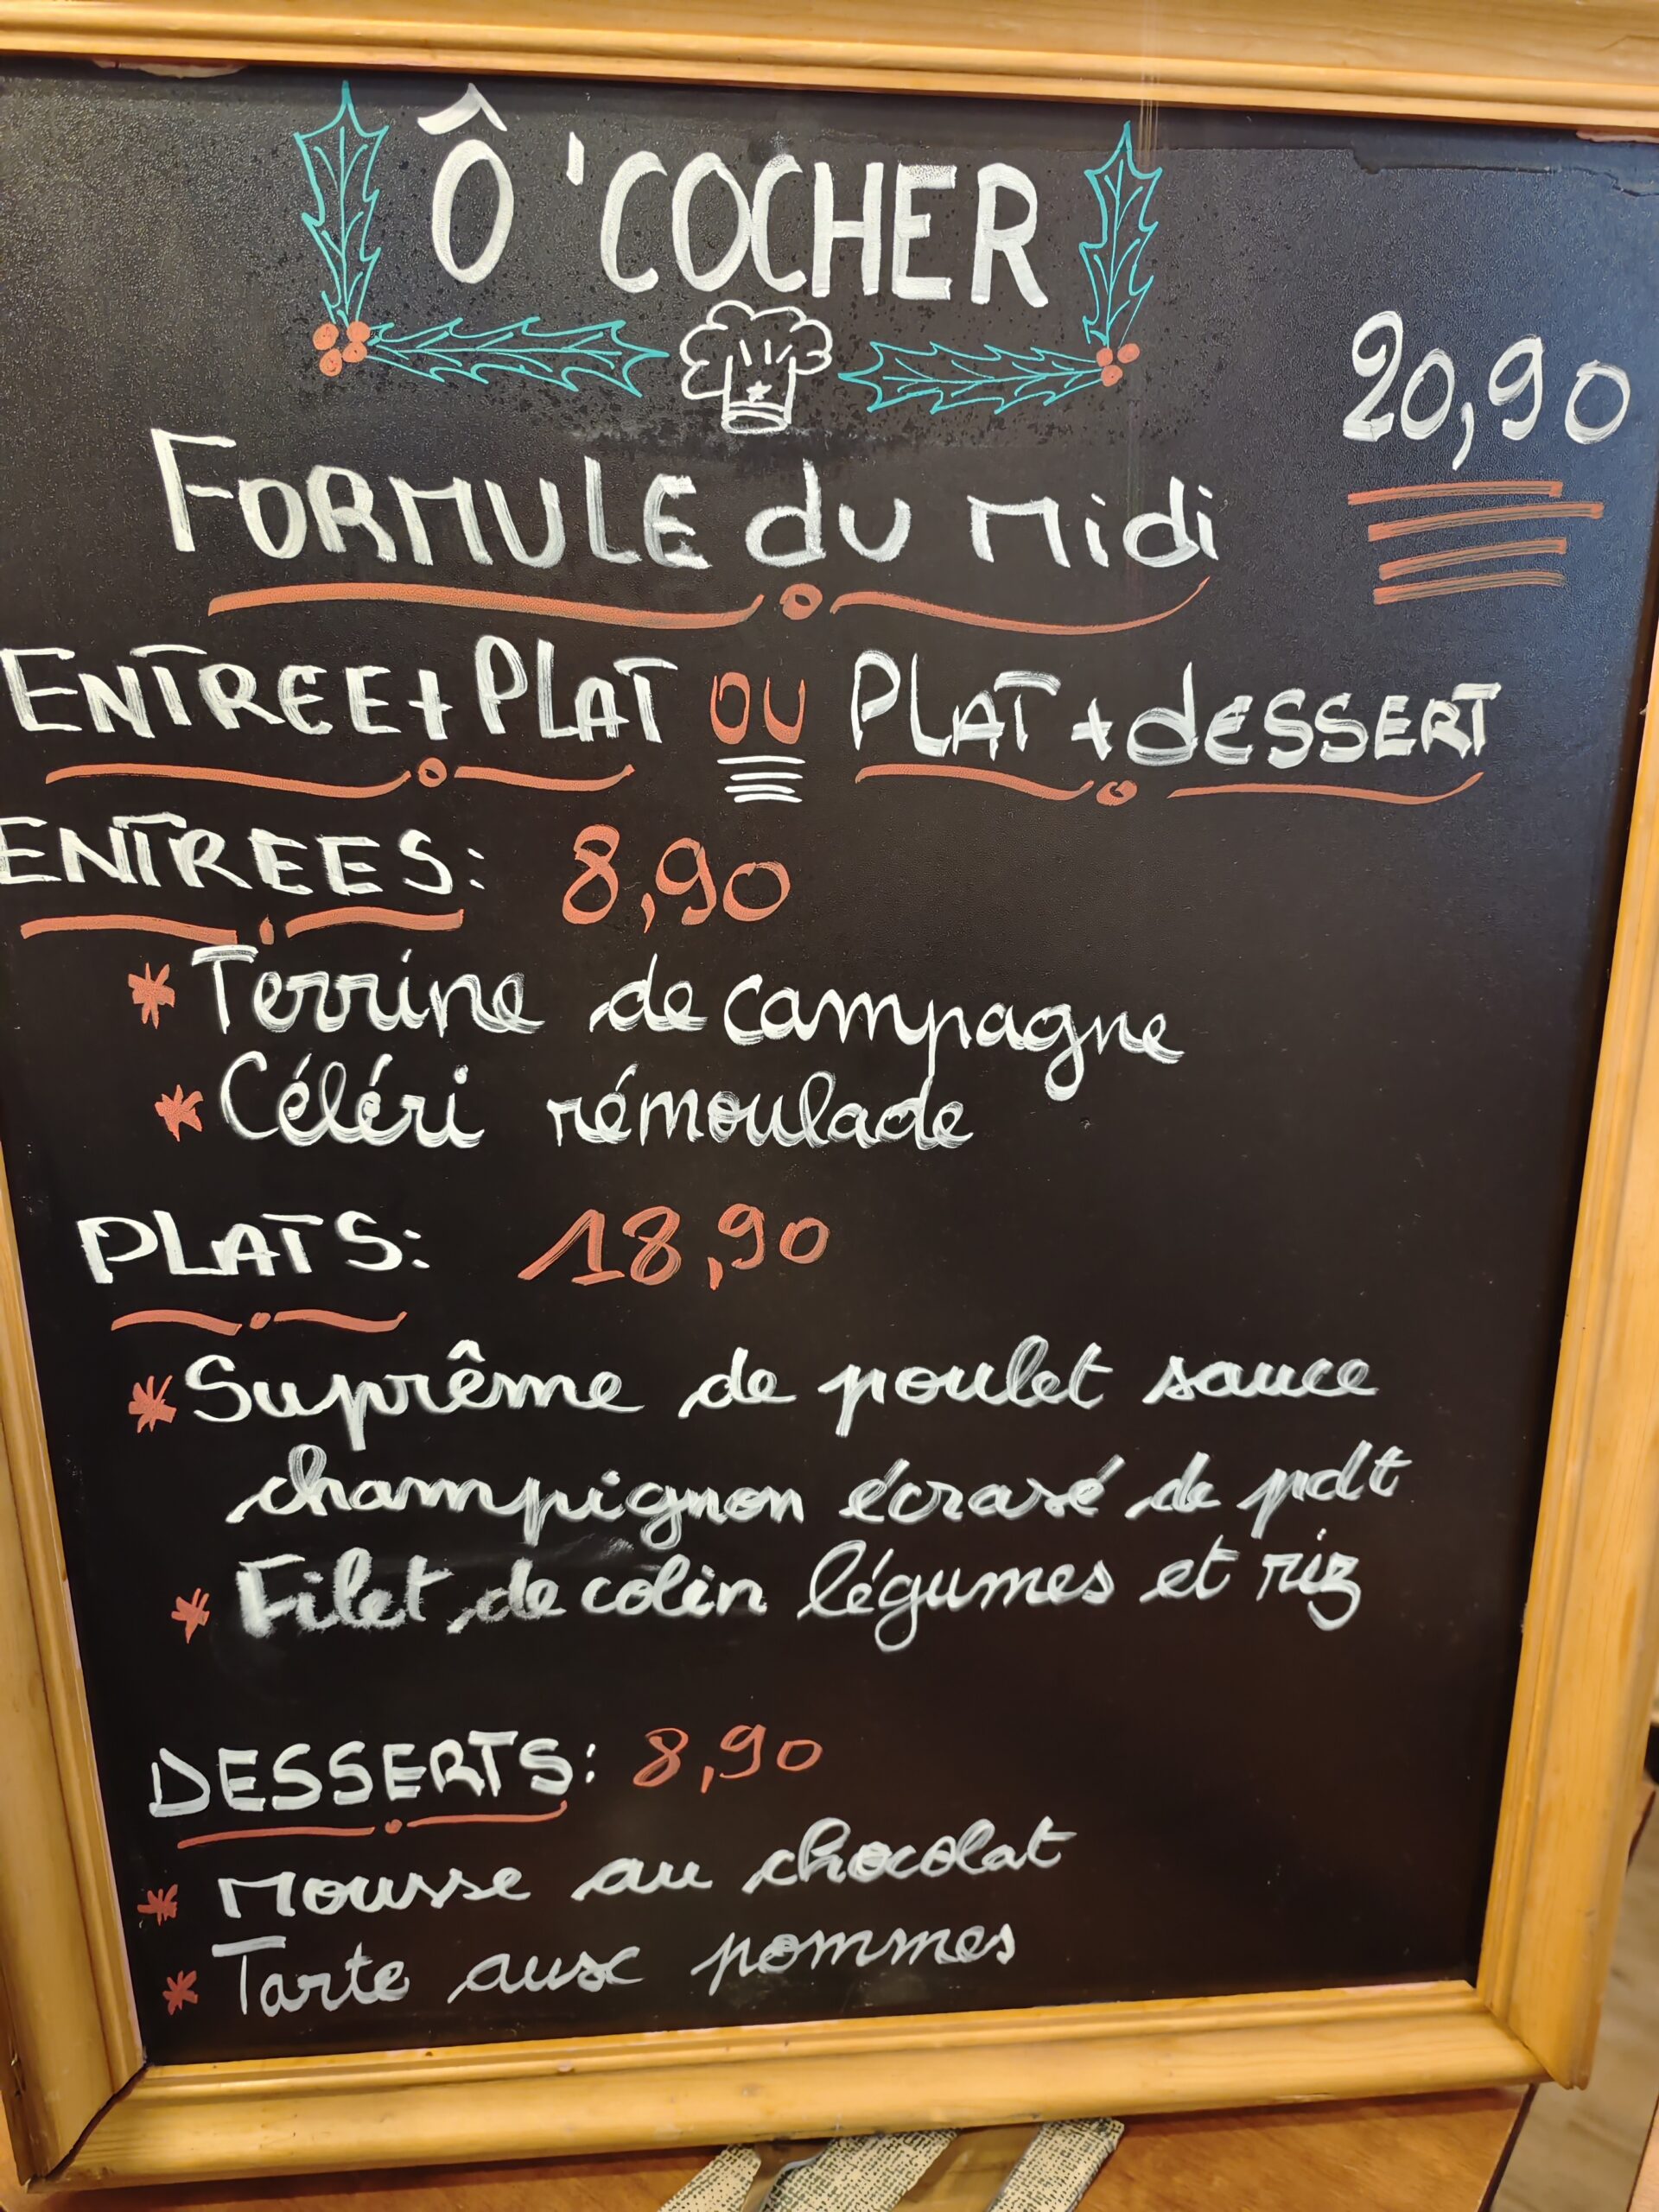 Ô'COCHER
20,90
FORMULE du Midi
ENTREE+PLAT OU PLAT+dESSERT
ENTREES: 8,90
* Terrine de campagne
* Céléri rémoulade
PLATS: 18,90
* Suprême de poulet sauce
champignon écrasé de pdt
* Filet de colin légumes et riz
DESSERTS: 8,90
* Mousse au chocolat
* Tarte aux pommes